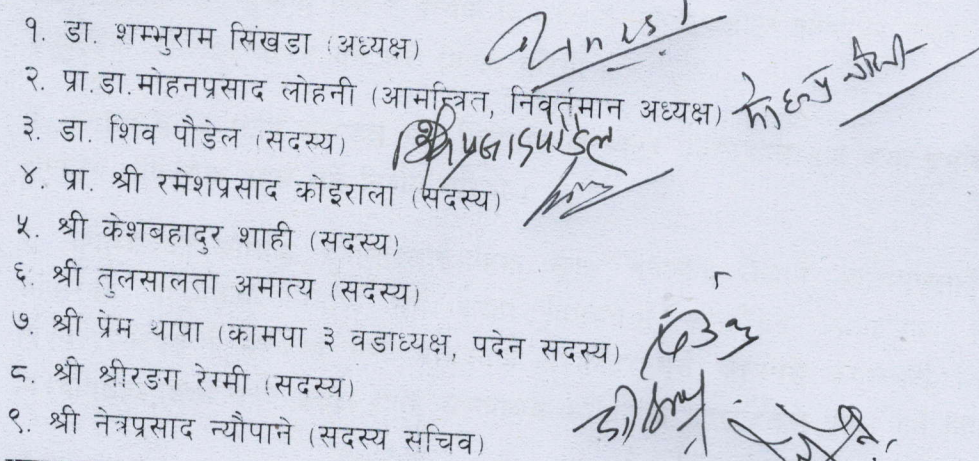 १. डा. शम्भुराम सिंखडा (अध्यक्ष)
२. प्रा.डा.मोहनप्रसाद लोहनी (आमन्त्रित, निवर्तमान अध्यक्ष)
३. डा. शिव पौडेल (सदस्य)
४. प्रा. श्री रमेशप्रसाद कोइराला (सदस्य)
५. श्री केशबहादुर शाही (सदस्य)
६. श्री तुलसालता अमात्य (सदस्य)
७. श्री प्रेम थापा (कामपा ३ वडाध्यक्ष, पदेन सदस्य)
८. श्री श्रीरङग रेग्मी (सदस्य)
९. श्री नेत्रप्रसाद न्यौपाने (सदस्य सचिव)